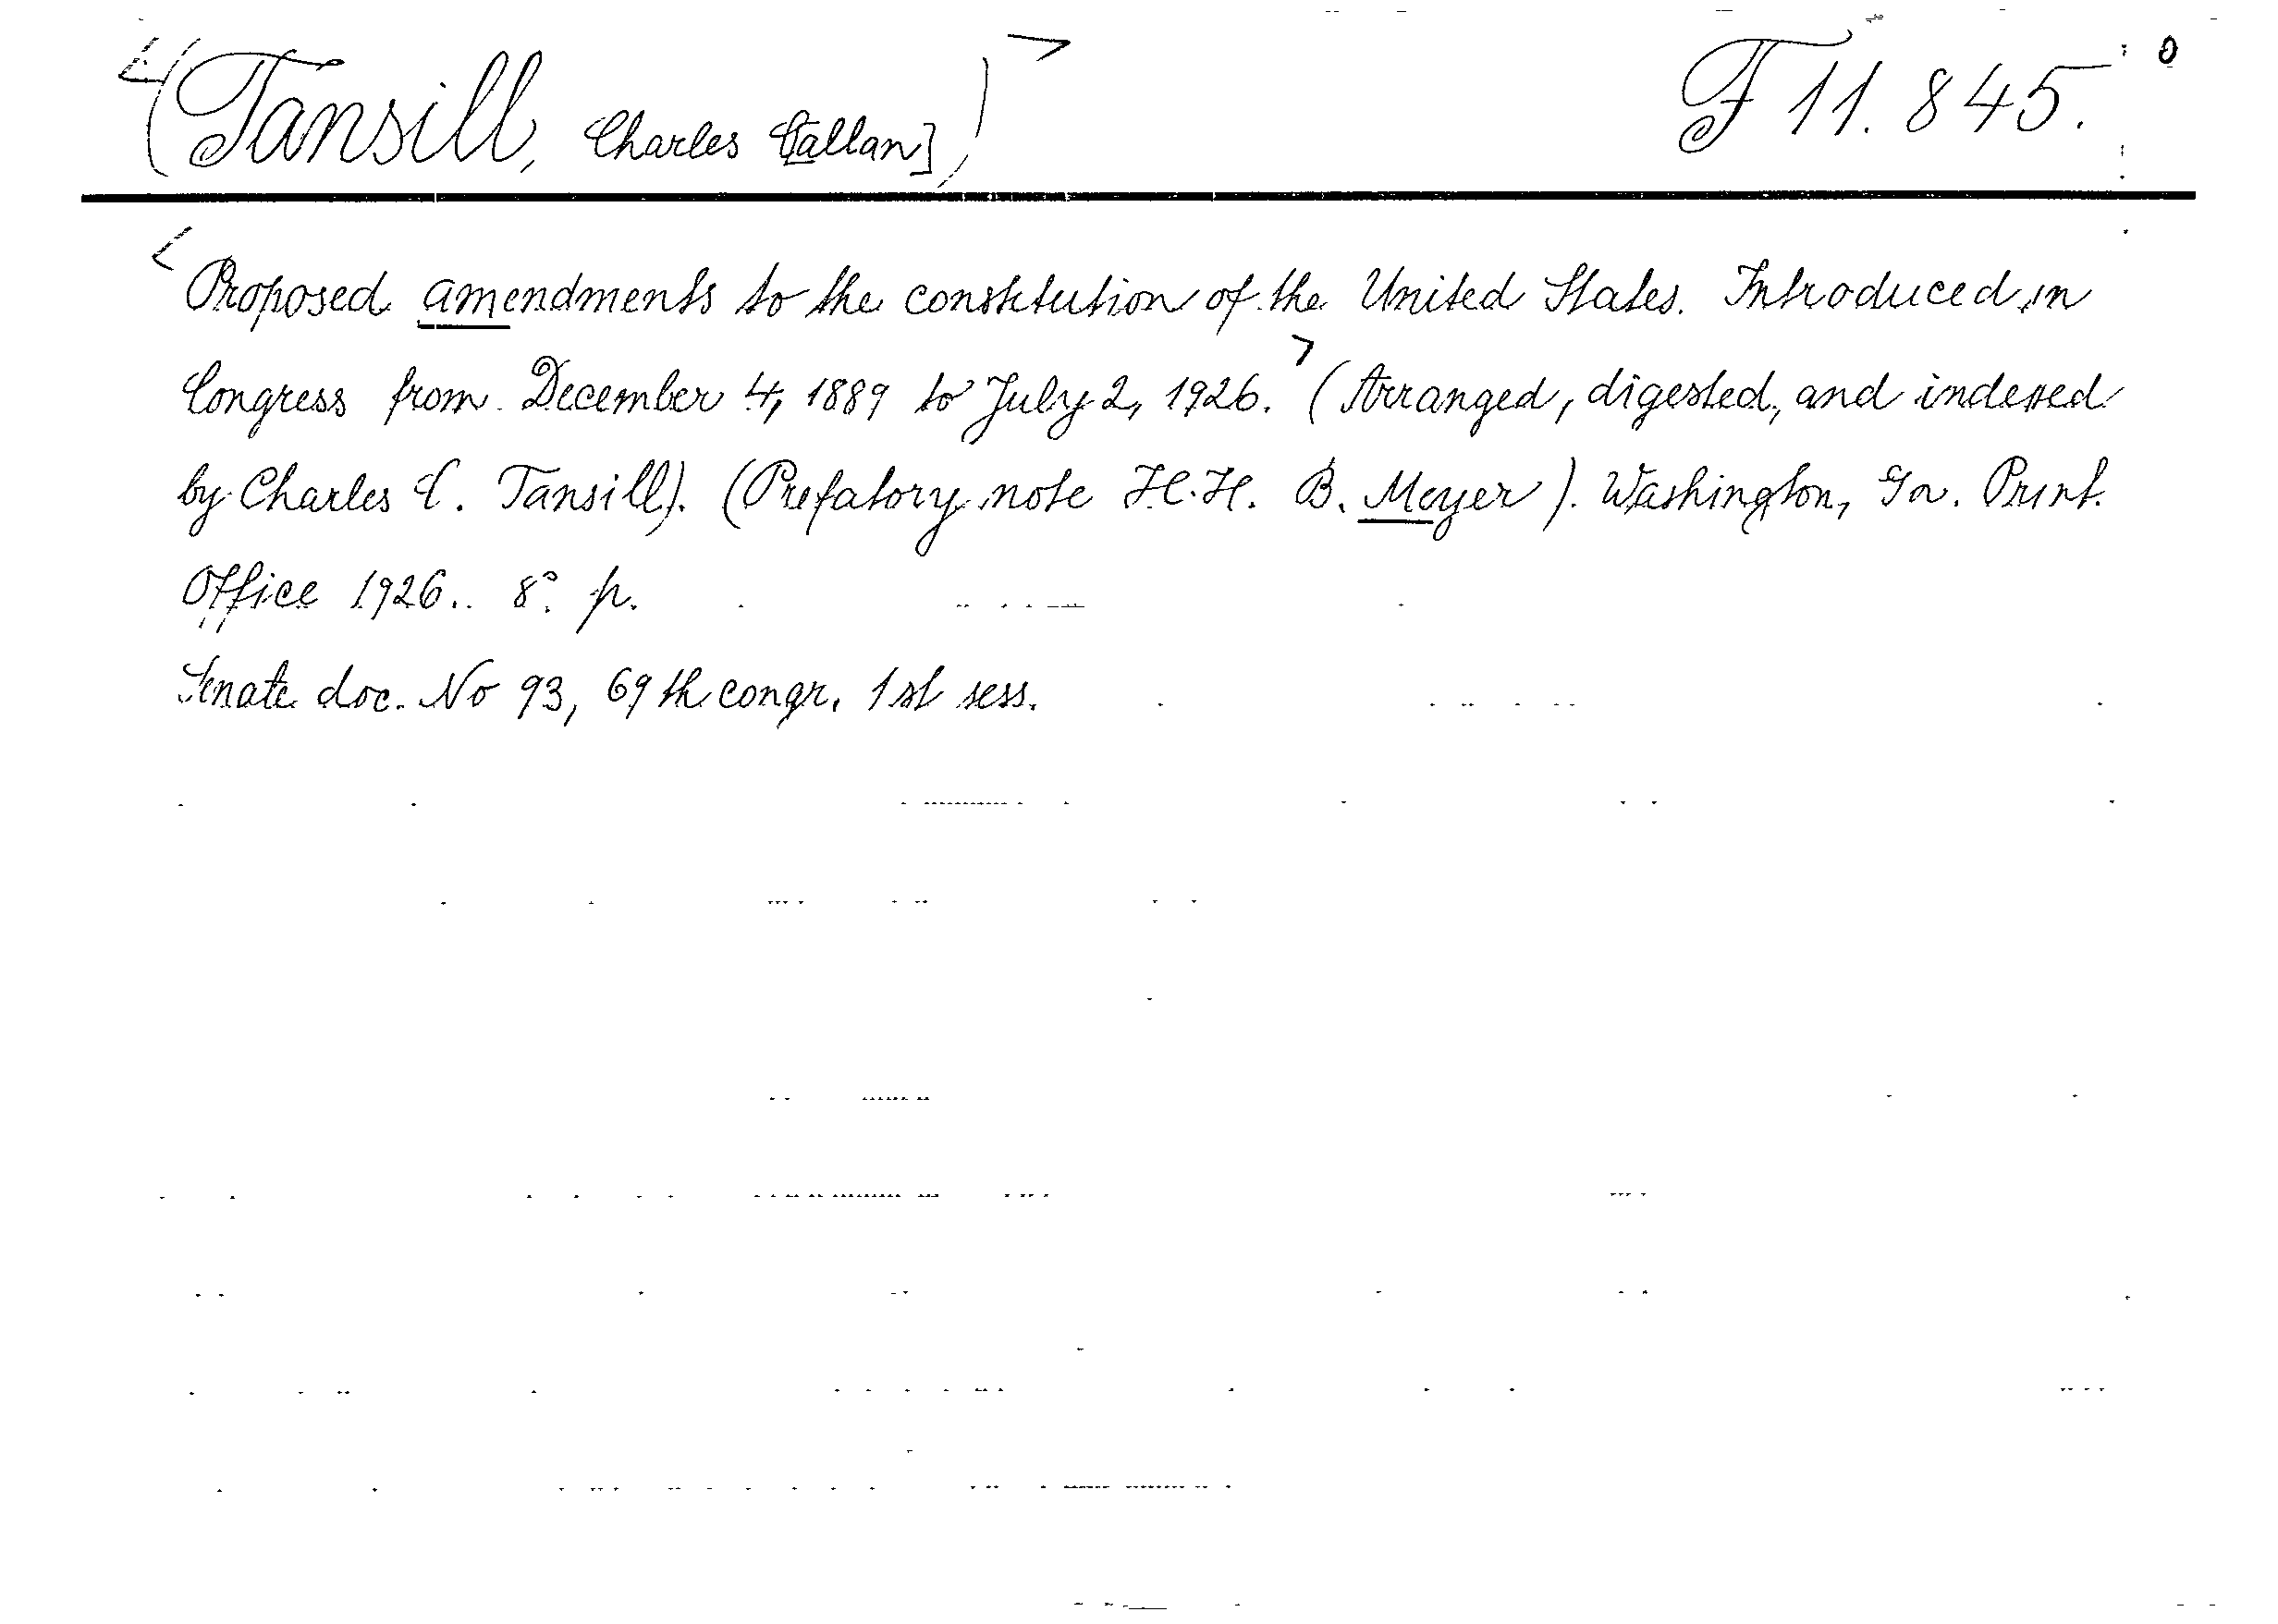 <(Tansill, Charles Callan])> F 11.845.
<Proposed amendments to the constitution of the United States. Introduced in
Congress from December 4, 1889 to July 2, 1926.> (Arranged, digested, and indexed
by Charles C. Tansill). (Prefatory note H. H. B. Meyer). Washington, Gov. Print.
Office 1926.. 8° p.
Senate doc. No 93, 69th congr. 1st sess.